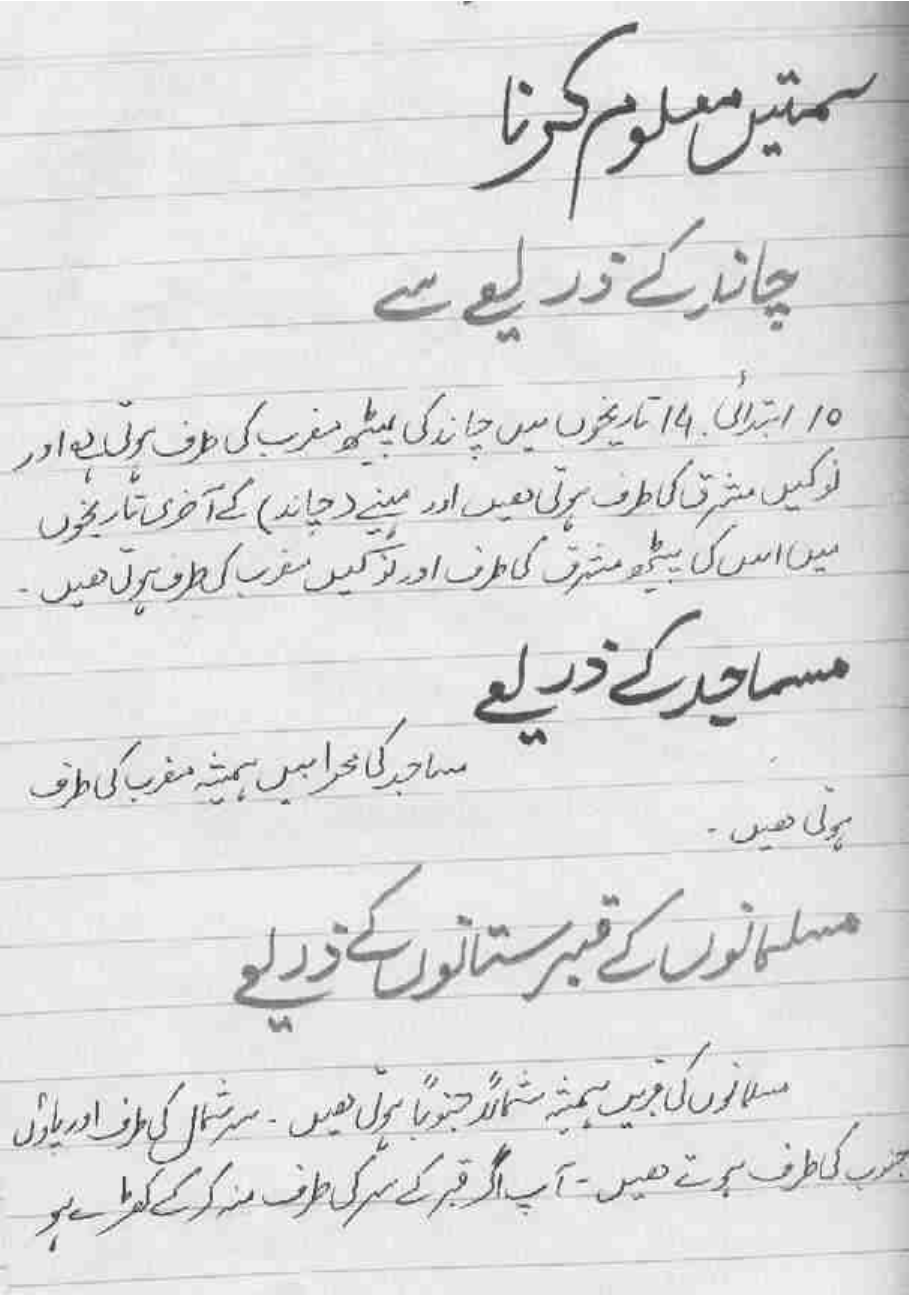 سمتیں معلوم کرنا
چاند کے ذریعے سے
10 ابتدائی 14 تاریخوں میں چاند کی پیٹھ مغرب کی طرف ہوتی ہے اور
نوکیں مشرق کی طرف ہوتی ھیں اور مہینے (چاند) کے آخری تاریخوں
میں اس کی پیٹھ مشرق کی طرف اور نوکیں مغرب کی طرف ہوتی ھیں ۔
مساجد کے ذریعے
مساجد کی محرابیں ہمیشہ مغرب کی طرف
ہوتی ھیں ۔
مسلمانوں کے قبرستانوں کے ذریعے
مسلمانوں کی قبریں ہمیشہ شمالاً جنوباً ہوتی ھیں ۔ سر شمال کی طرف اور پاؤں
جنوب کی طرف ہوتے ھیں ۔ آپ اگر قبر کے سر کی طرف منہ کر کے کھڑے ہو